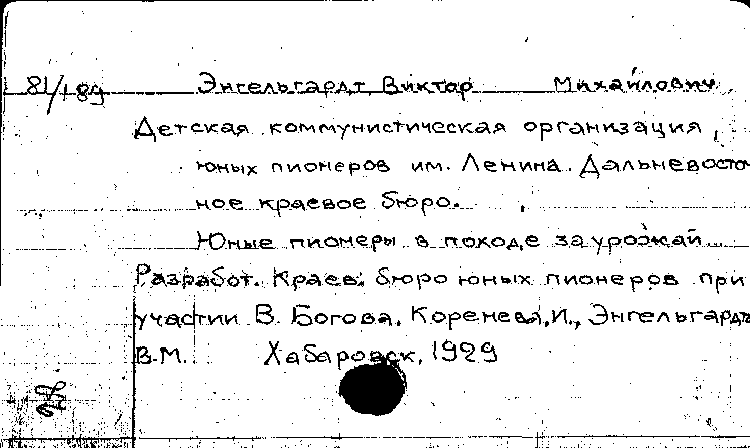 81/189 Энгельгардт, Виктор Михайлович
Детская коммунистическая организация,
юных пионеров им. Ленина. Дальневосточ
ное краевое бюро.
Юные пионеры в походе за урожай
Разработ. Краев. бюро юных пионеров при
участии В. Богова, Коренева, И., Энгельгардта
В.М. Хабаровск, 1929